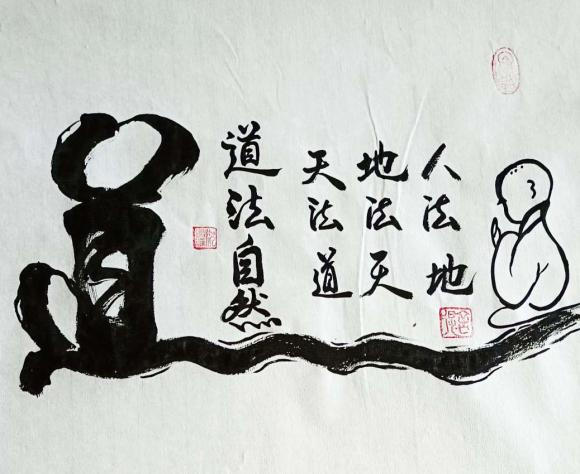 人法地
地法天
天法道
道法自然
道